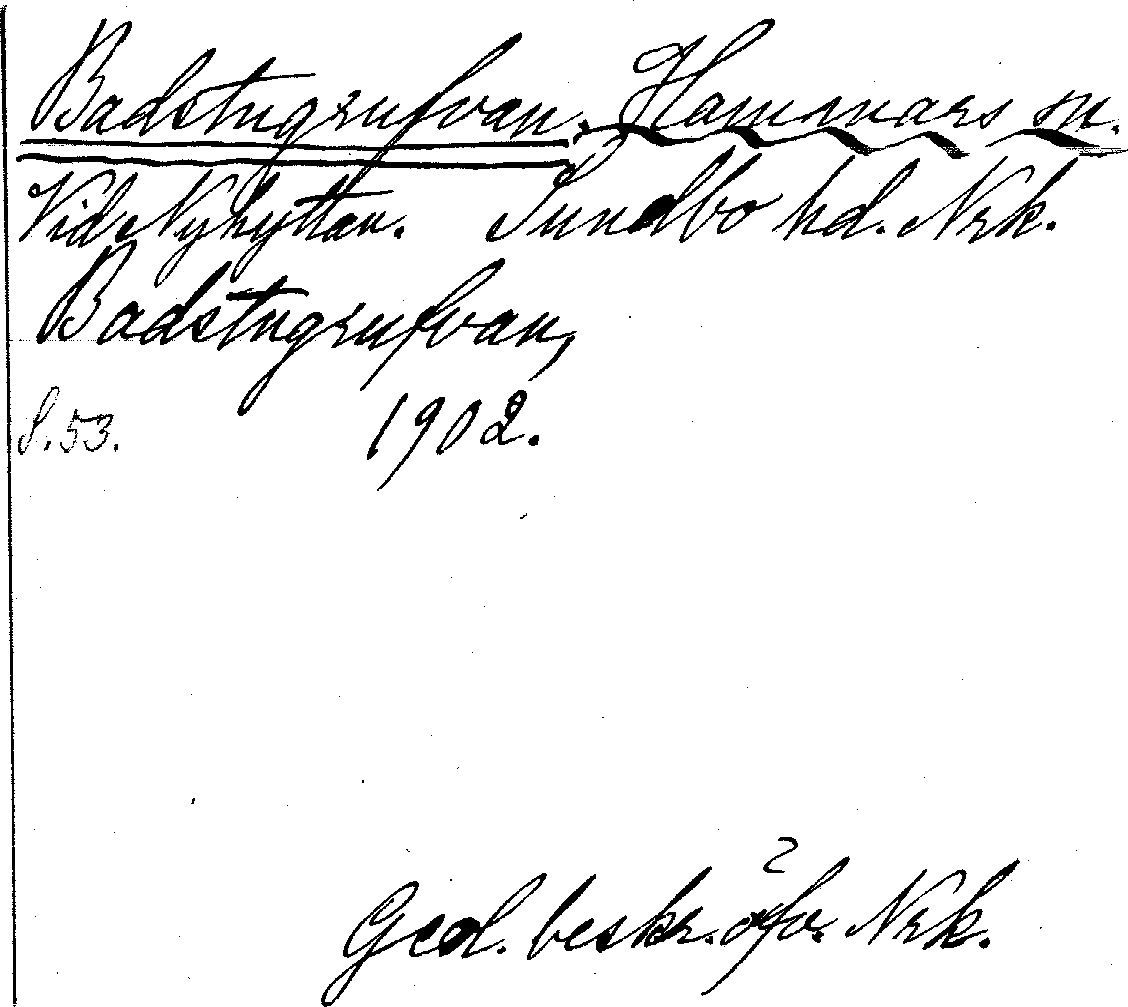 Badstugrufvan. Hammars sn.
Vid Nyhyttan. Sundbo hd. Nrk.
Badstugrufvan,
S. 53. 1902.
Geol. beskr. öfv. Nrk.